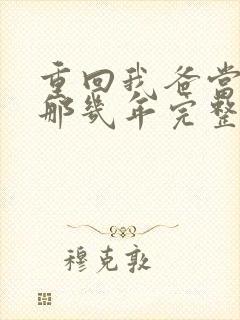 重回我爸当
那几年完整
穆克敦